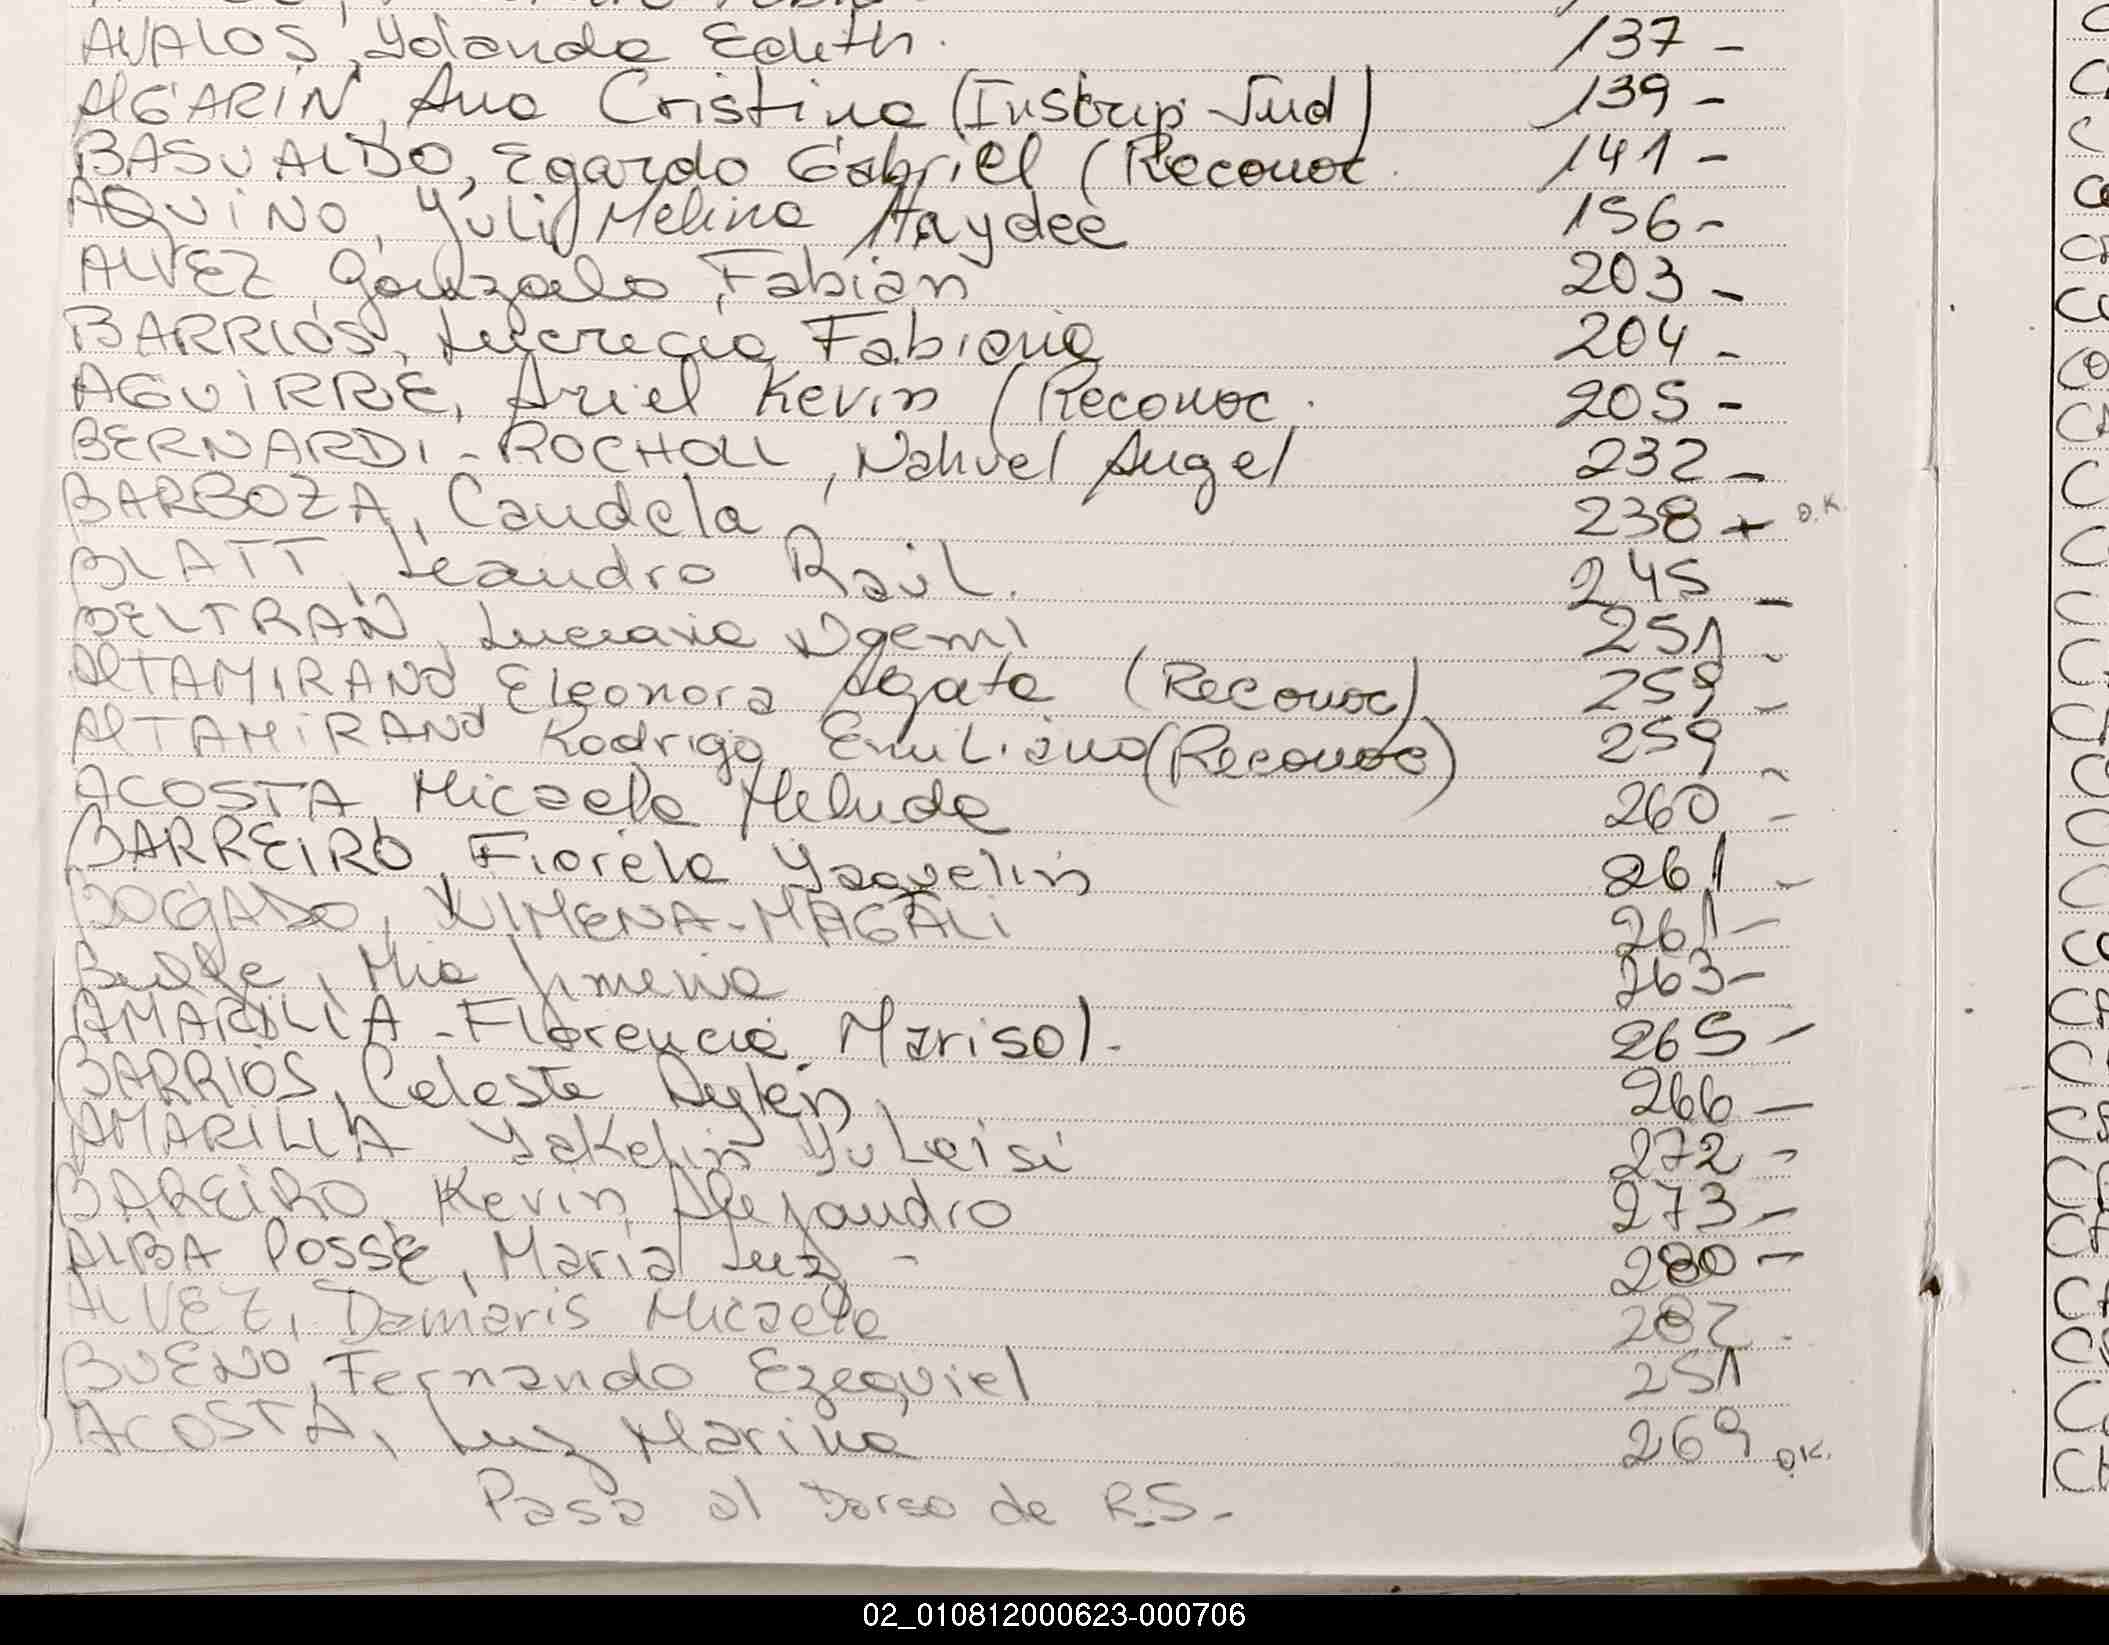 AVALOS, Yolanda Edith. 137 -
ALGARIN, Ana Cristina (Inscrip. Jud) 139 -
BASUALDO, Egardo Gabriel (Reconoc. 141 -
AQUINO, Yuli Melina Haydeé 156 -
ALVEZ, Gonzalo Fabian 203 -
BARRIOS, Lucrecia Fabiana 204 -
AGUIRRE, Ariel Kevin (Reconoc. 205 -
BERNARDI - ROCHOLL, Nahuel Angel 232 -
BARBOZA, Candela 238 + O.K.
BLATT, Leandro Raúl. 245 -
BELTRAN, Luciana Noemi 251 -
ALTAMIRANO Eleonora Agata (Reconoc) 259 -
ALTAMIRANO Rodrigo Emiliano (Reconoc) 259 -
ACOSTA Micaela 260 -
BARREIRO, Fiorela Yaquelin 261 -
BOGADO, XIMENA - MAGALI 261 -
Mia Jimena 263 -
AMARILLA - Florencia Marisol. 265 -
BARRIOS, Celeste Aylén 266 -
AMARILLA Yakelin Yuleisi 272 -
BAREIRO, Kevin Alejandro 273 -
ALBA POSSE, Maria Luz - 280 -
ALVEZ, Damaris Micaela 282 -
BUENO, Fernando Ezequiel 251
ACOSTA, Luz Marina 269 O.K.
Pasa al Dorso de R.S. -
02_010812000623-000706